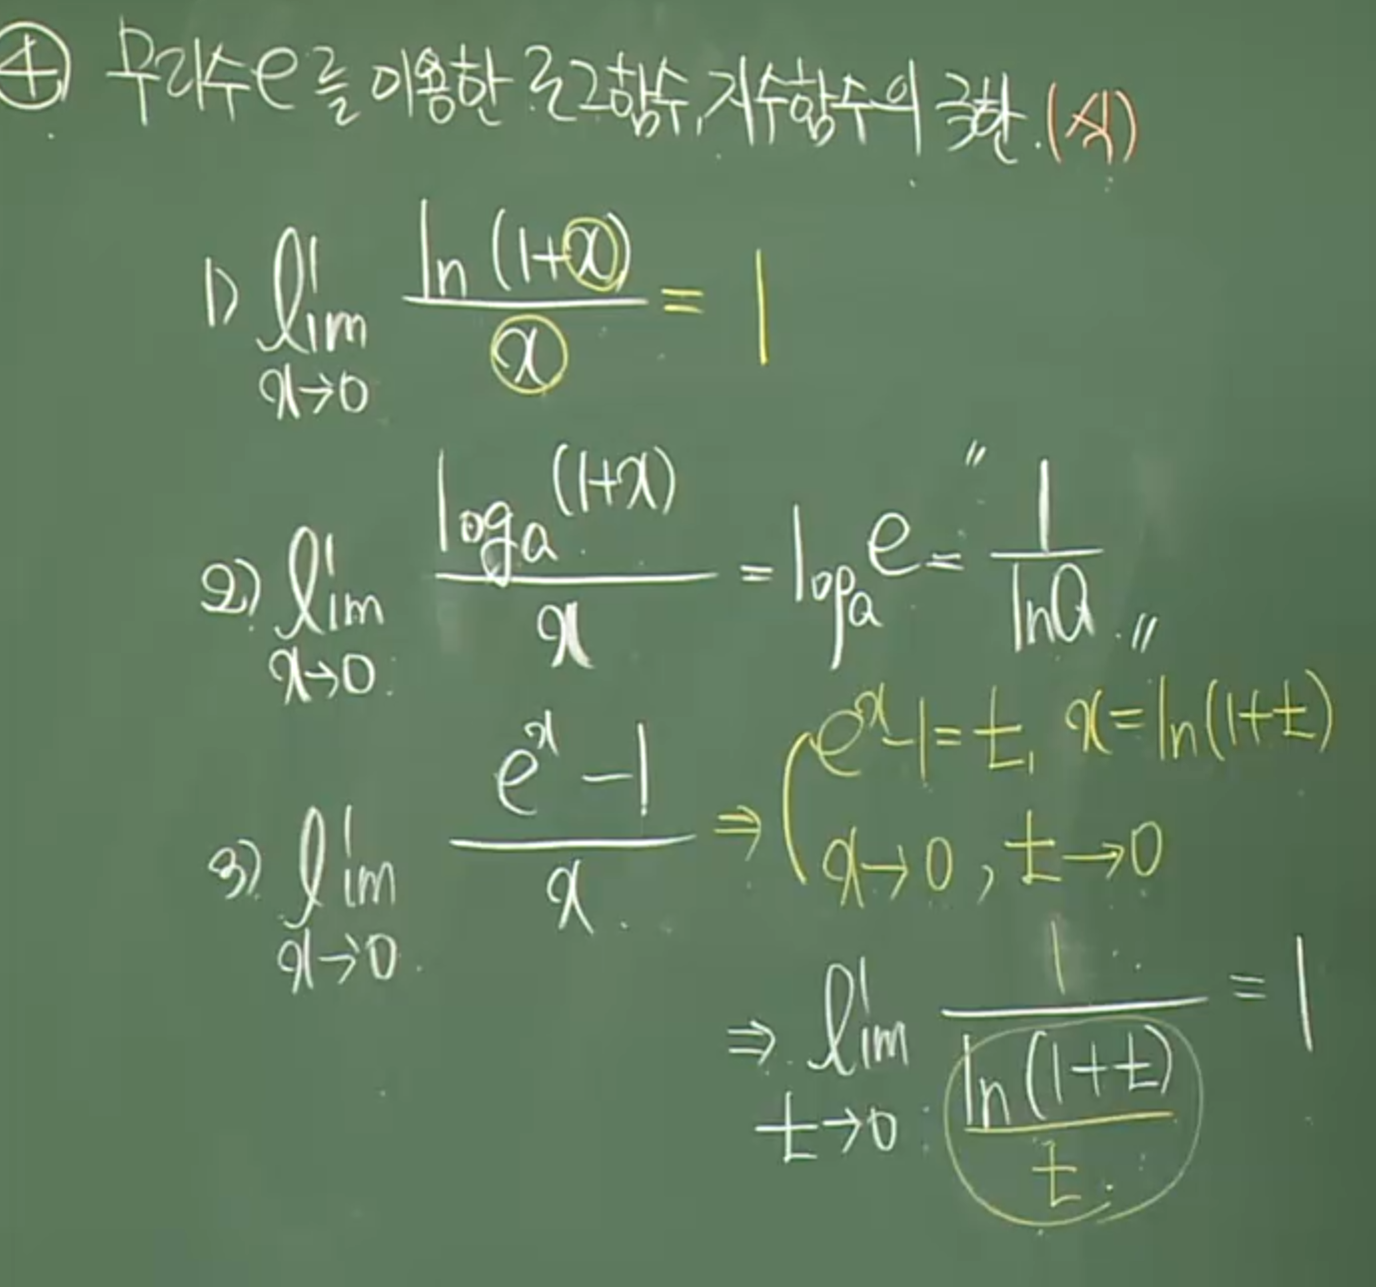 ④ 무리수 e를 이용한 로그함수, 지수함수의 극한. (식)
1) lim x→0 ln(1+x)/x = 1
2) lim x→0 log_a(1+x)/x = log_a e = " 1/ln a "
3) lim x→0 (e^x -1)/x ⇒ ( e^x -1 = t, x = ln(1+t)
x→0, t→0
⇒ lim t→0 1/(ln(1+t)/t) = 1